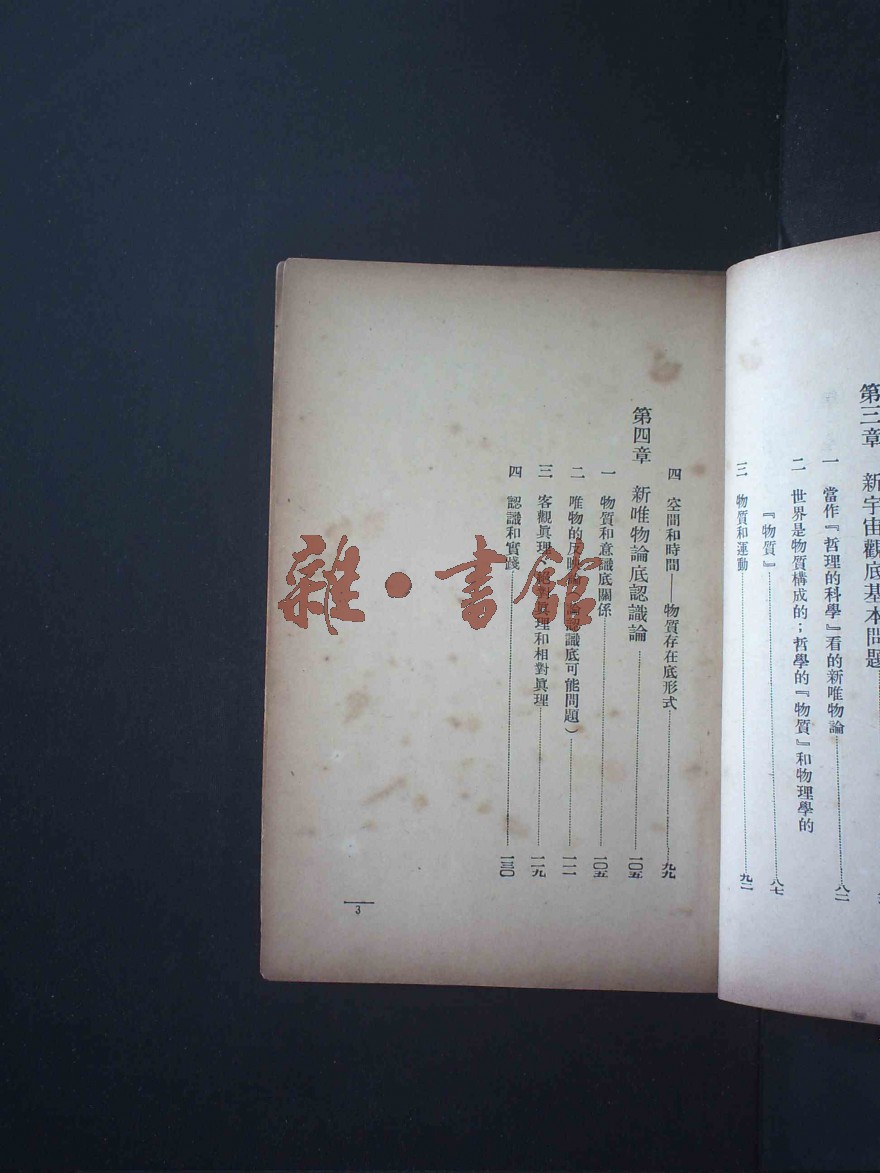 第三章　新宇宙觀底基本問題
一　當作『哲理的科學』看的新唯物論……八二
二　世界是物質構成的；哲學的『物質』和物理學的
『物質』……八七
三　物質和運動……九二
四　空間和時間——物質存在底形式……九九
第四章　新唯物論底認識論……一〇五
一　物質和意識底關係……一〇五
二　唯物的反映論（論認識底可能問題）……一一一
三　客觀眞理，絕對眞理和相對眞理……一一九
四　認識和實踐……一三〇
3
雜・書館